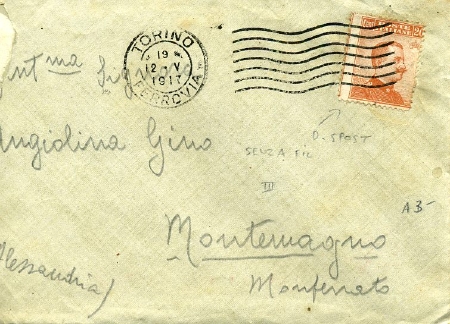 TORINO
19
12 V
1917
FERROVIA
20
Gent ma Signora
Angiolina Gino
D. SPOST
SENZA FIL
III
A3-
Montemagno
Monferrato
(Alessandria)